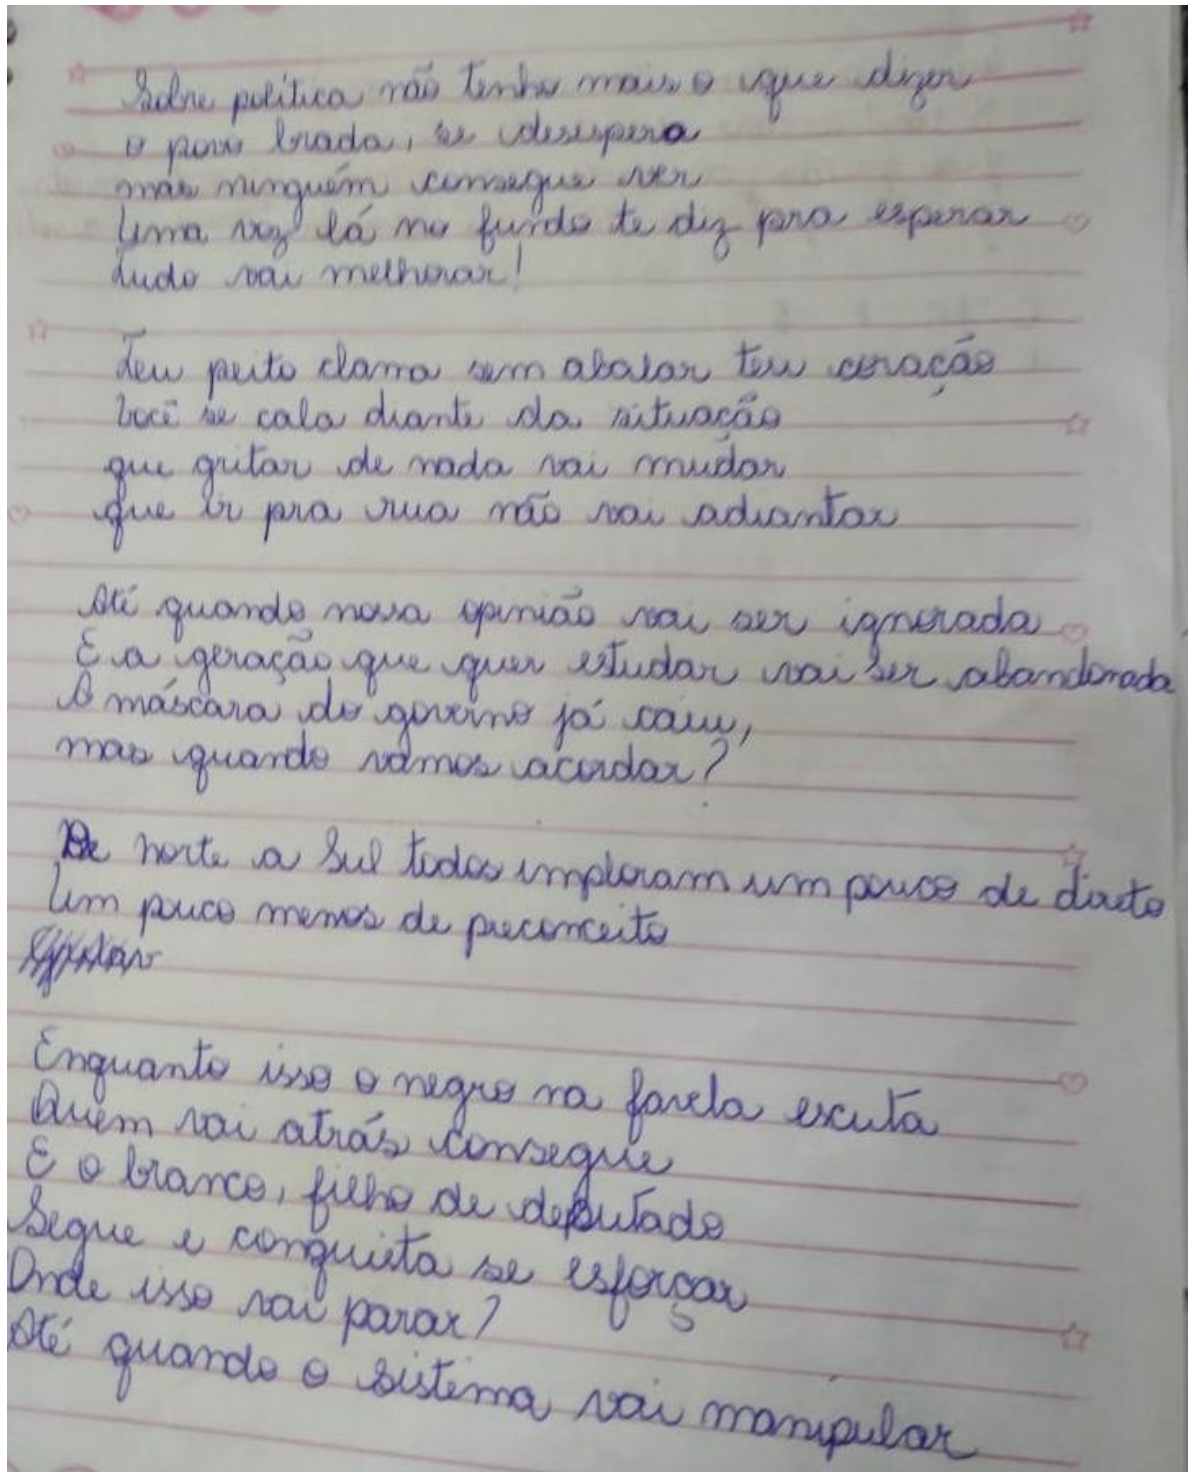 Sobre política não tenho mais o que dizer
o povo brada, se desespera
mas ninguém consegue ver
Uma voz lá no fundo te diz pra esperar
tudo vai melhorar!
Teu peito clama sem abalar teu coração
Você se cala diante da situação
que gritar de nada vai mudar
que ir pra rua não vai adiantar
Até quando nossa opinião vai ser ignorada
E a geração que quer estudar vai ser abandonada
A máscara do governo já caiu,
mas quando vamos acordar?
De norte a Sul todos imploram um pouco de direto
Um pouco menos de preconceito
Enquanto isso o negro na favela escuta
Quem vai atrás consegue
E o branco, filho de deputado
Segue e conquista se esforçar
Onde isso vai parar?
Até quando o sistema vai manipular